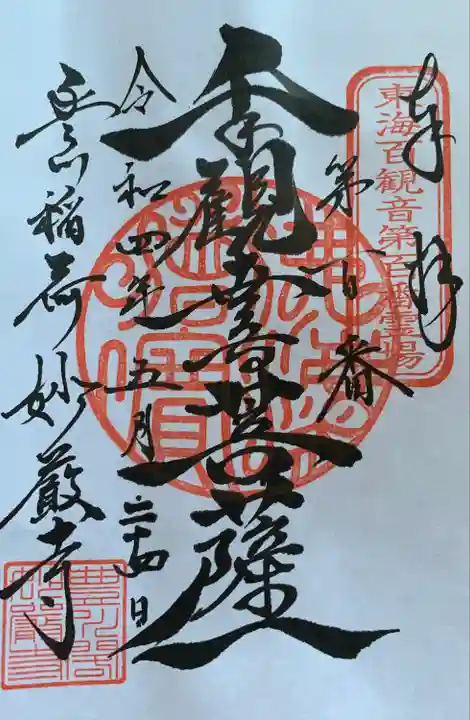 奉拝
東海百観音第百番霊場
第百番
千手觀世音菩薩
令和四年五月二十四日
豊川稲荷妙厳寺